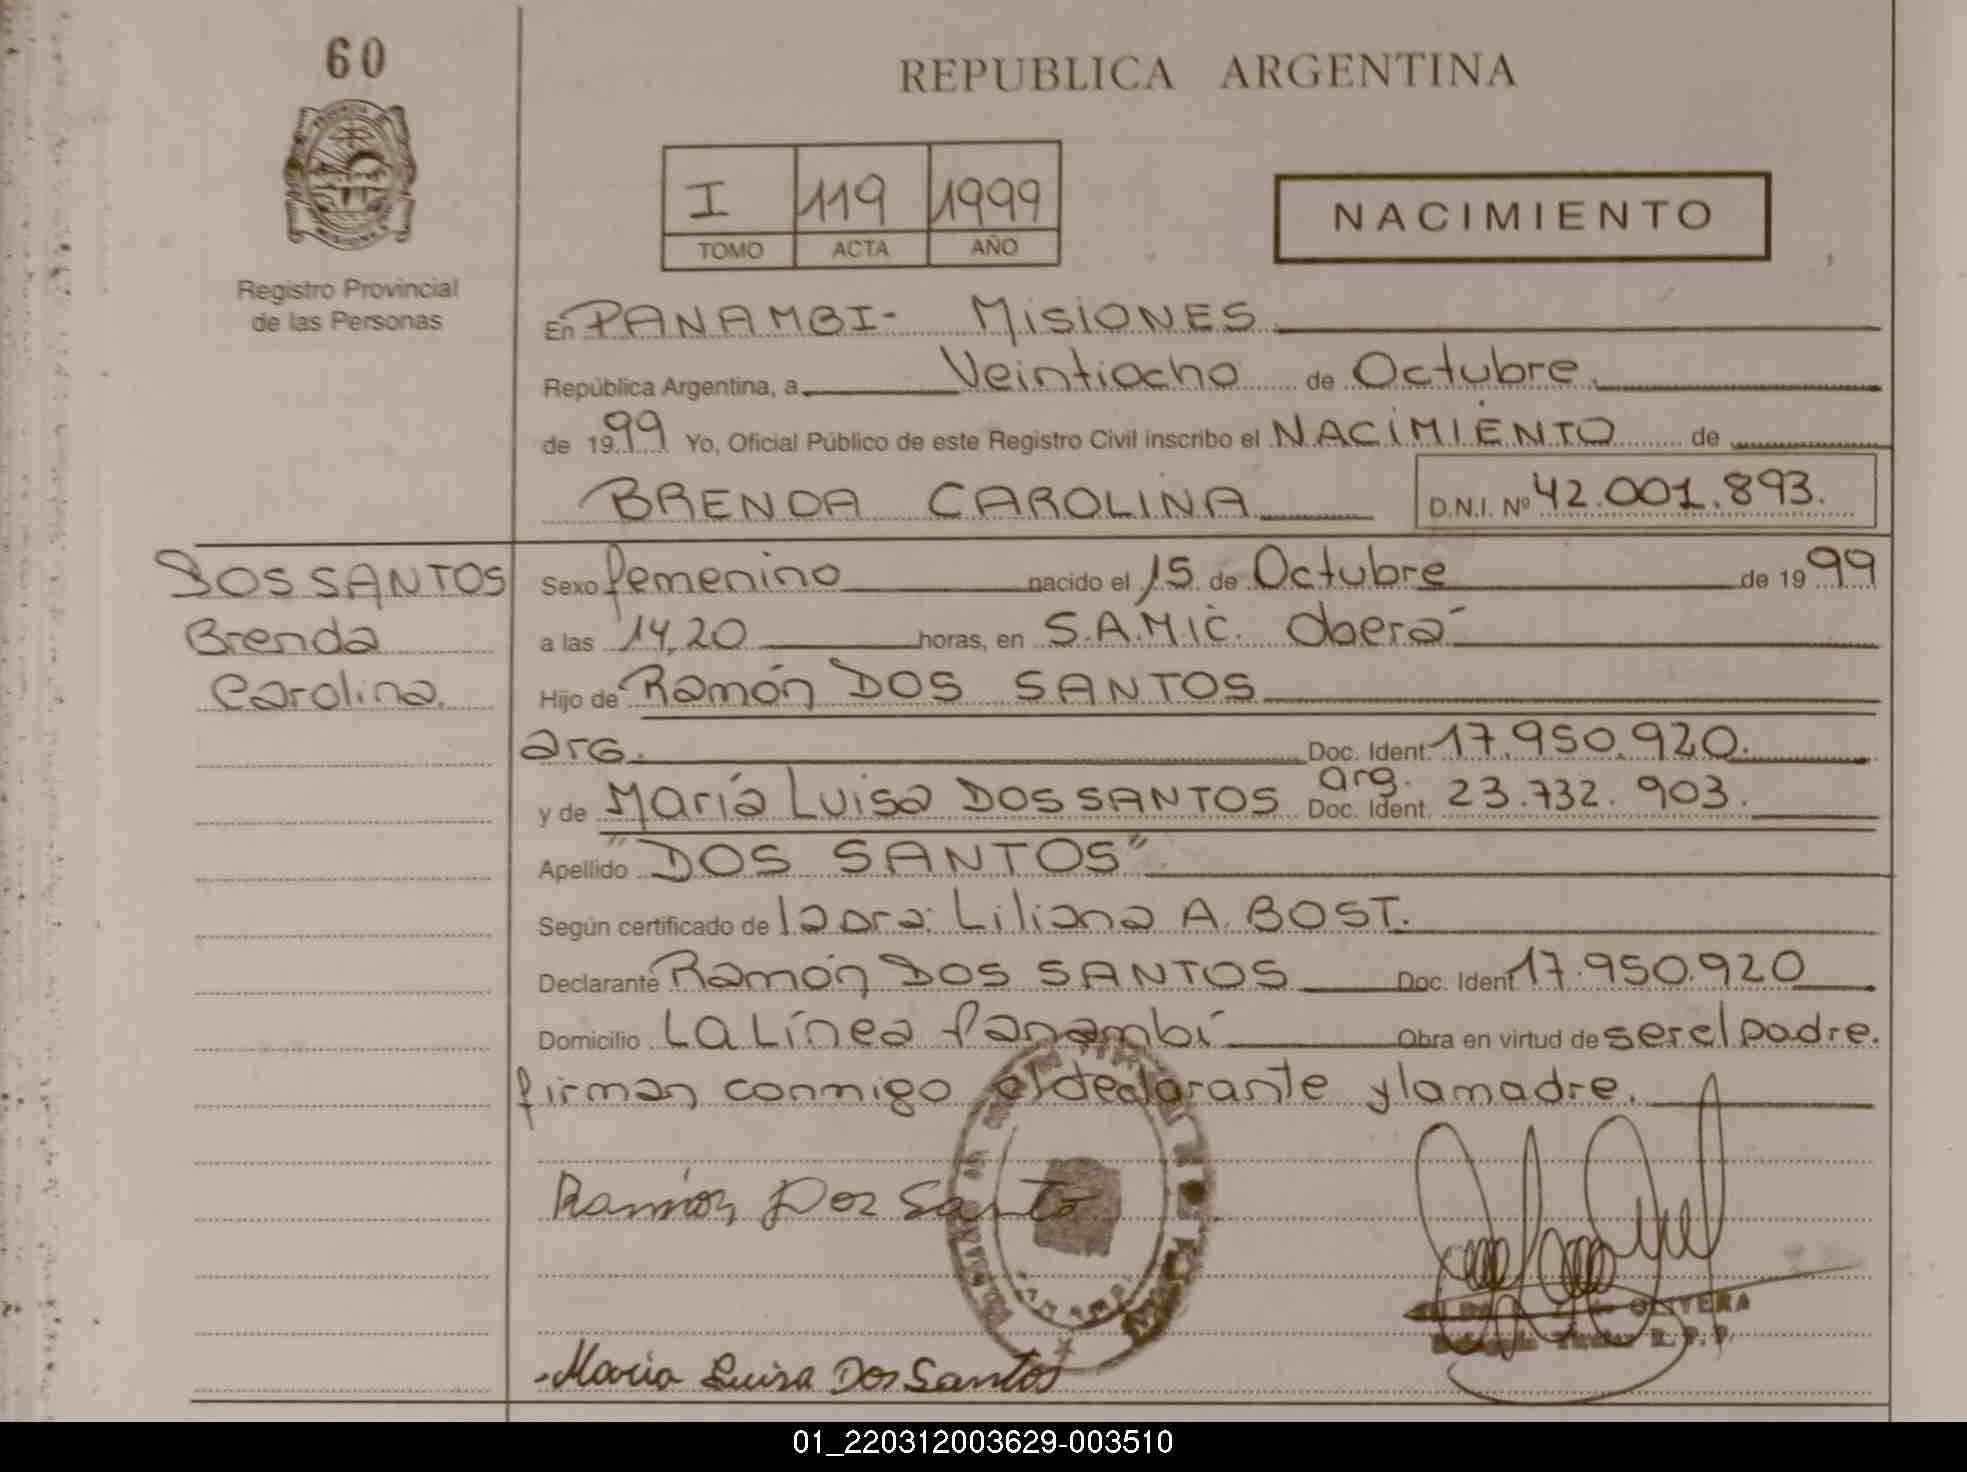 60
REPUBLICA ARGENTINA
I 119 1999
TOMO ACTA AÑO
NACIMIENTO
Registro Provincial
de las Personas
En PANAMBI- MISIONES
República Argentina, a Veintiocho de Octubre
de 1999 Yo, Oficial Público de este Registro Civil inscribo el NACIMIENTO de
BRENDA CAROLINA D.N.I. Nº 42.001.893.
DOS SANTOS
Brenda
Carolina.
Sexo femenino nacido el 15 de Octubre de 1999
a las 14,20 horas, en S.A.M.i.C. Oberá
Hijo de Ramón DOS SANTOS
arg. Doc. Ident. 17.950.920.
arg.
y de María Luisa DOS SANTOS Doc. Ident. 23.732.903.
Apellido "DOS SANTOS"
Según certificado de la Dra: Liliana A. BOST.
Declarante Ramón DOS SANTOS Doc. Ident 17.950.920
Domicilio La Línea Panambí Obra en virtud de ser el padre.
firman conmigo el declarante y la madre.
Ramón Dos Santo
OLIVERA
R.P.P.
Maria Luisa Dos Santos
01_220312003629-003510